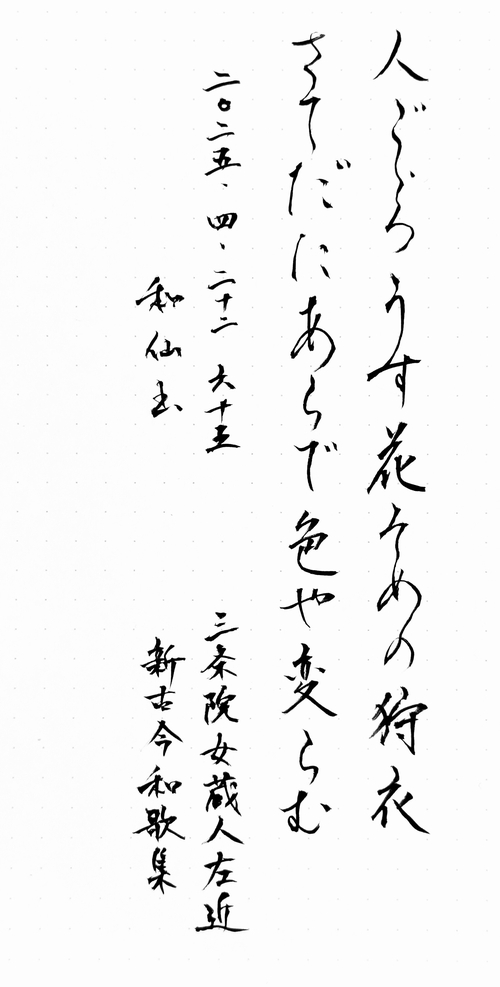 人ごゝろうす花そめの狩衣
さてだにあらで色や変らむ
二〇二五、四、二十二 六十五
三条院女蔵人左近
和仙玉
新古今和歌集